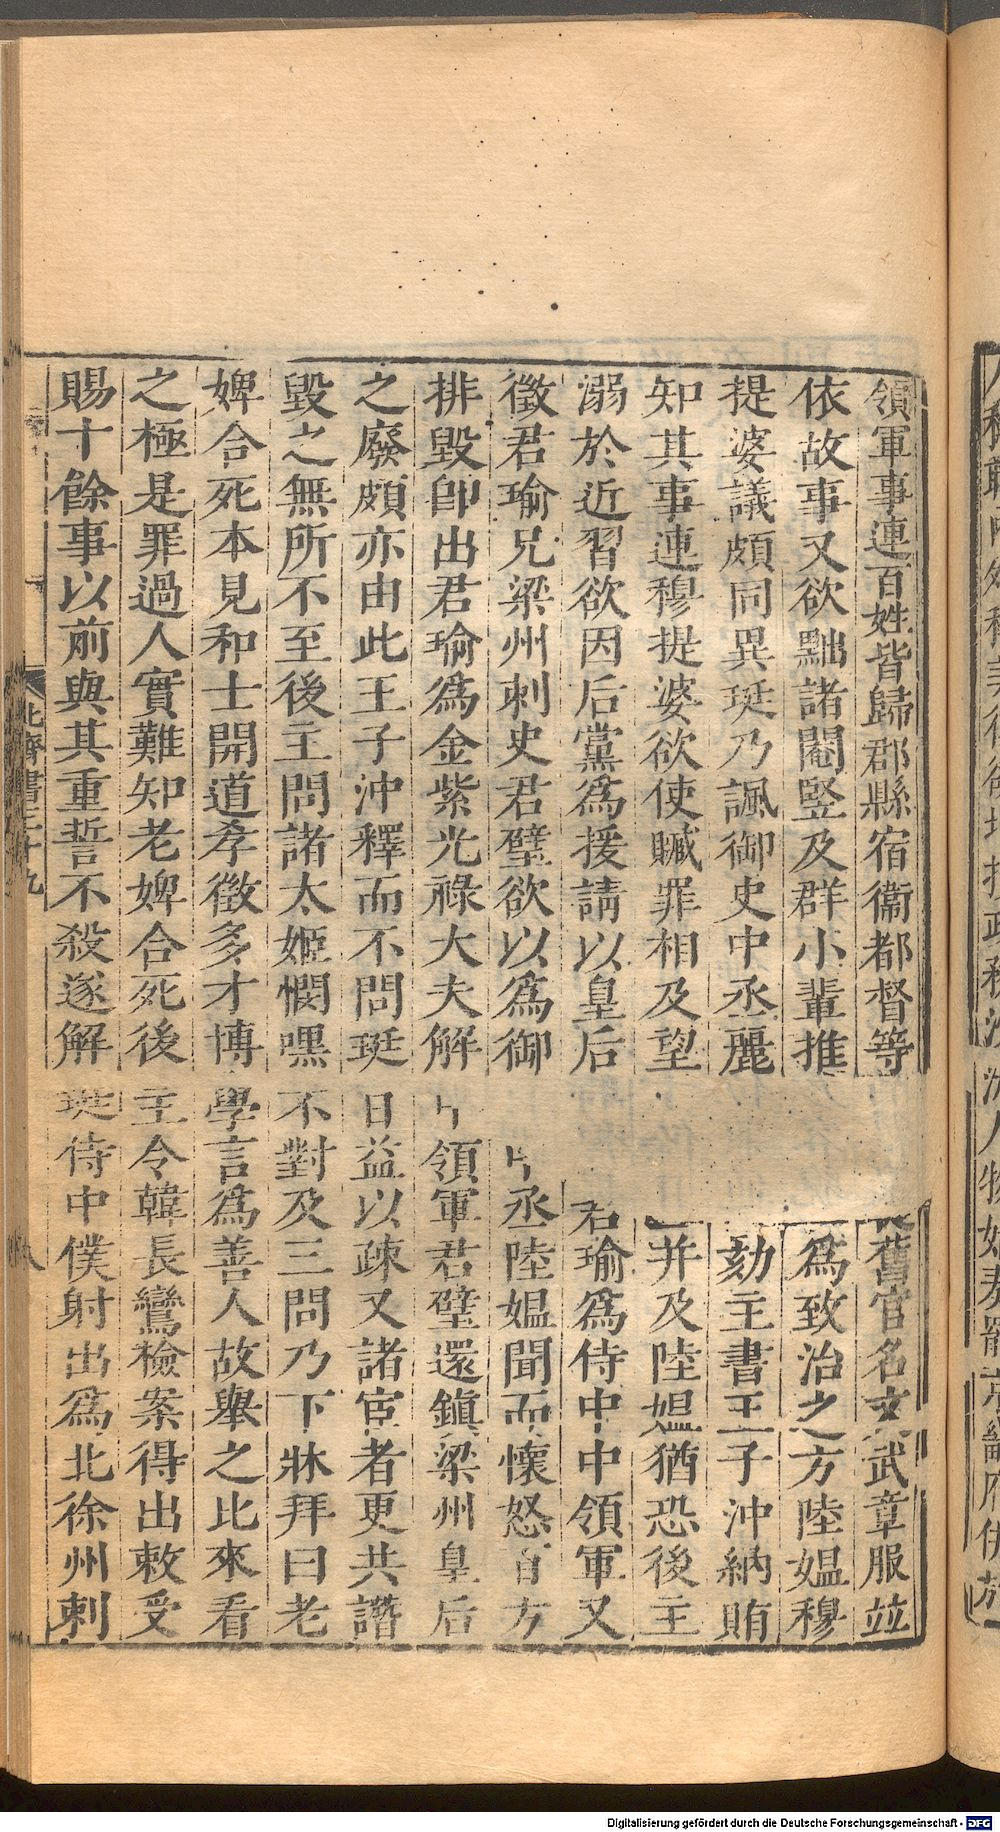 領軍事連百姓皆歸郡縣宿衞都督等舊官名文武章服並
依故事又欲黜諸閹竪及群小輩推爲致治之方陸媼穆
提婆議頗同異珽乃諷御史中丞麗劾主書王子沖納賄
知其事連穆提婆欲使贓罪相及望并及陸媼猶恐後主
溺於近習欲因后黨爲援請以皇后君瑜爲侍中中領軍又
徵君瑜兄梁州刺史君璧欲以爲御丞陸媼聞而懷怒百方
排毀卽出君瑜爲金紫光祿大夫解領軍君璧還鎮梁州皇后
之廢頗亦由此王子沖釋而不問珽日益以疎又諸宦者更共譖
毀之無所不至後主問諸太姬憫嘿不對及三問乃下牀拜曰老
婢合死本見和士開道孝徵多才博學言爲善人故舉之比來看
之極是罪過人實難知老婢合死後主令韓長鸞檢案得出敕受
賜十餘事以前與其重誓不殺遂解珽侍中僕射出爲北徐州刺
北齊書三十九
八
Digitalisierung gefördert durch die Deutsche Forschungsgemeinschaft - DFG